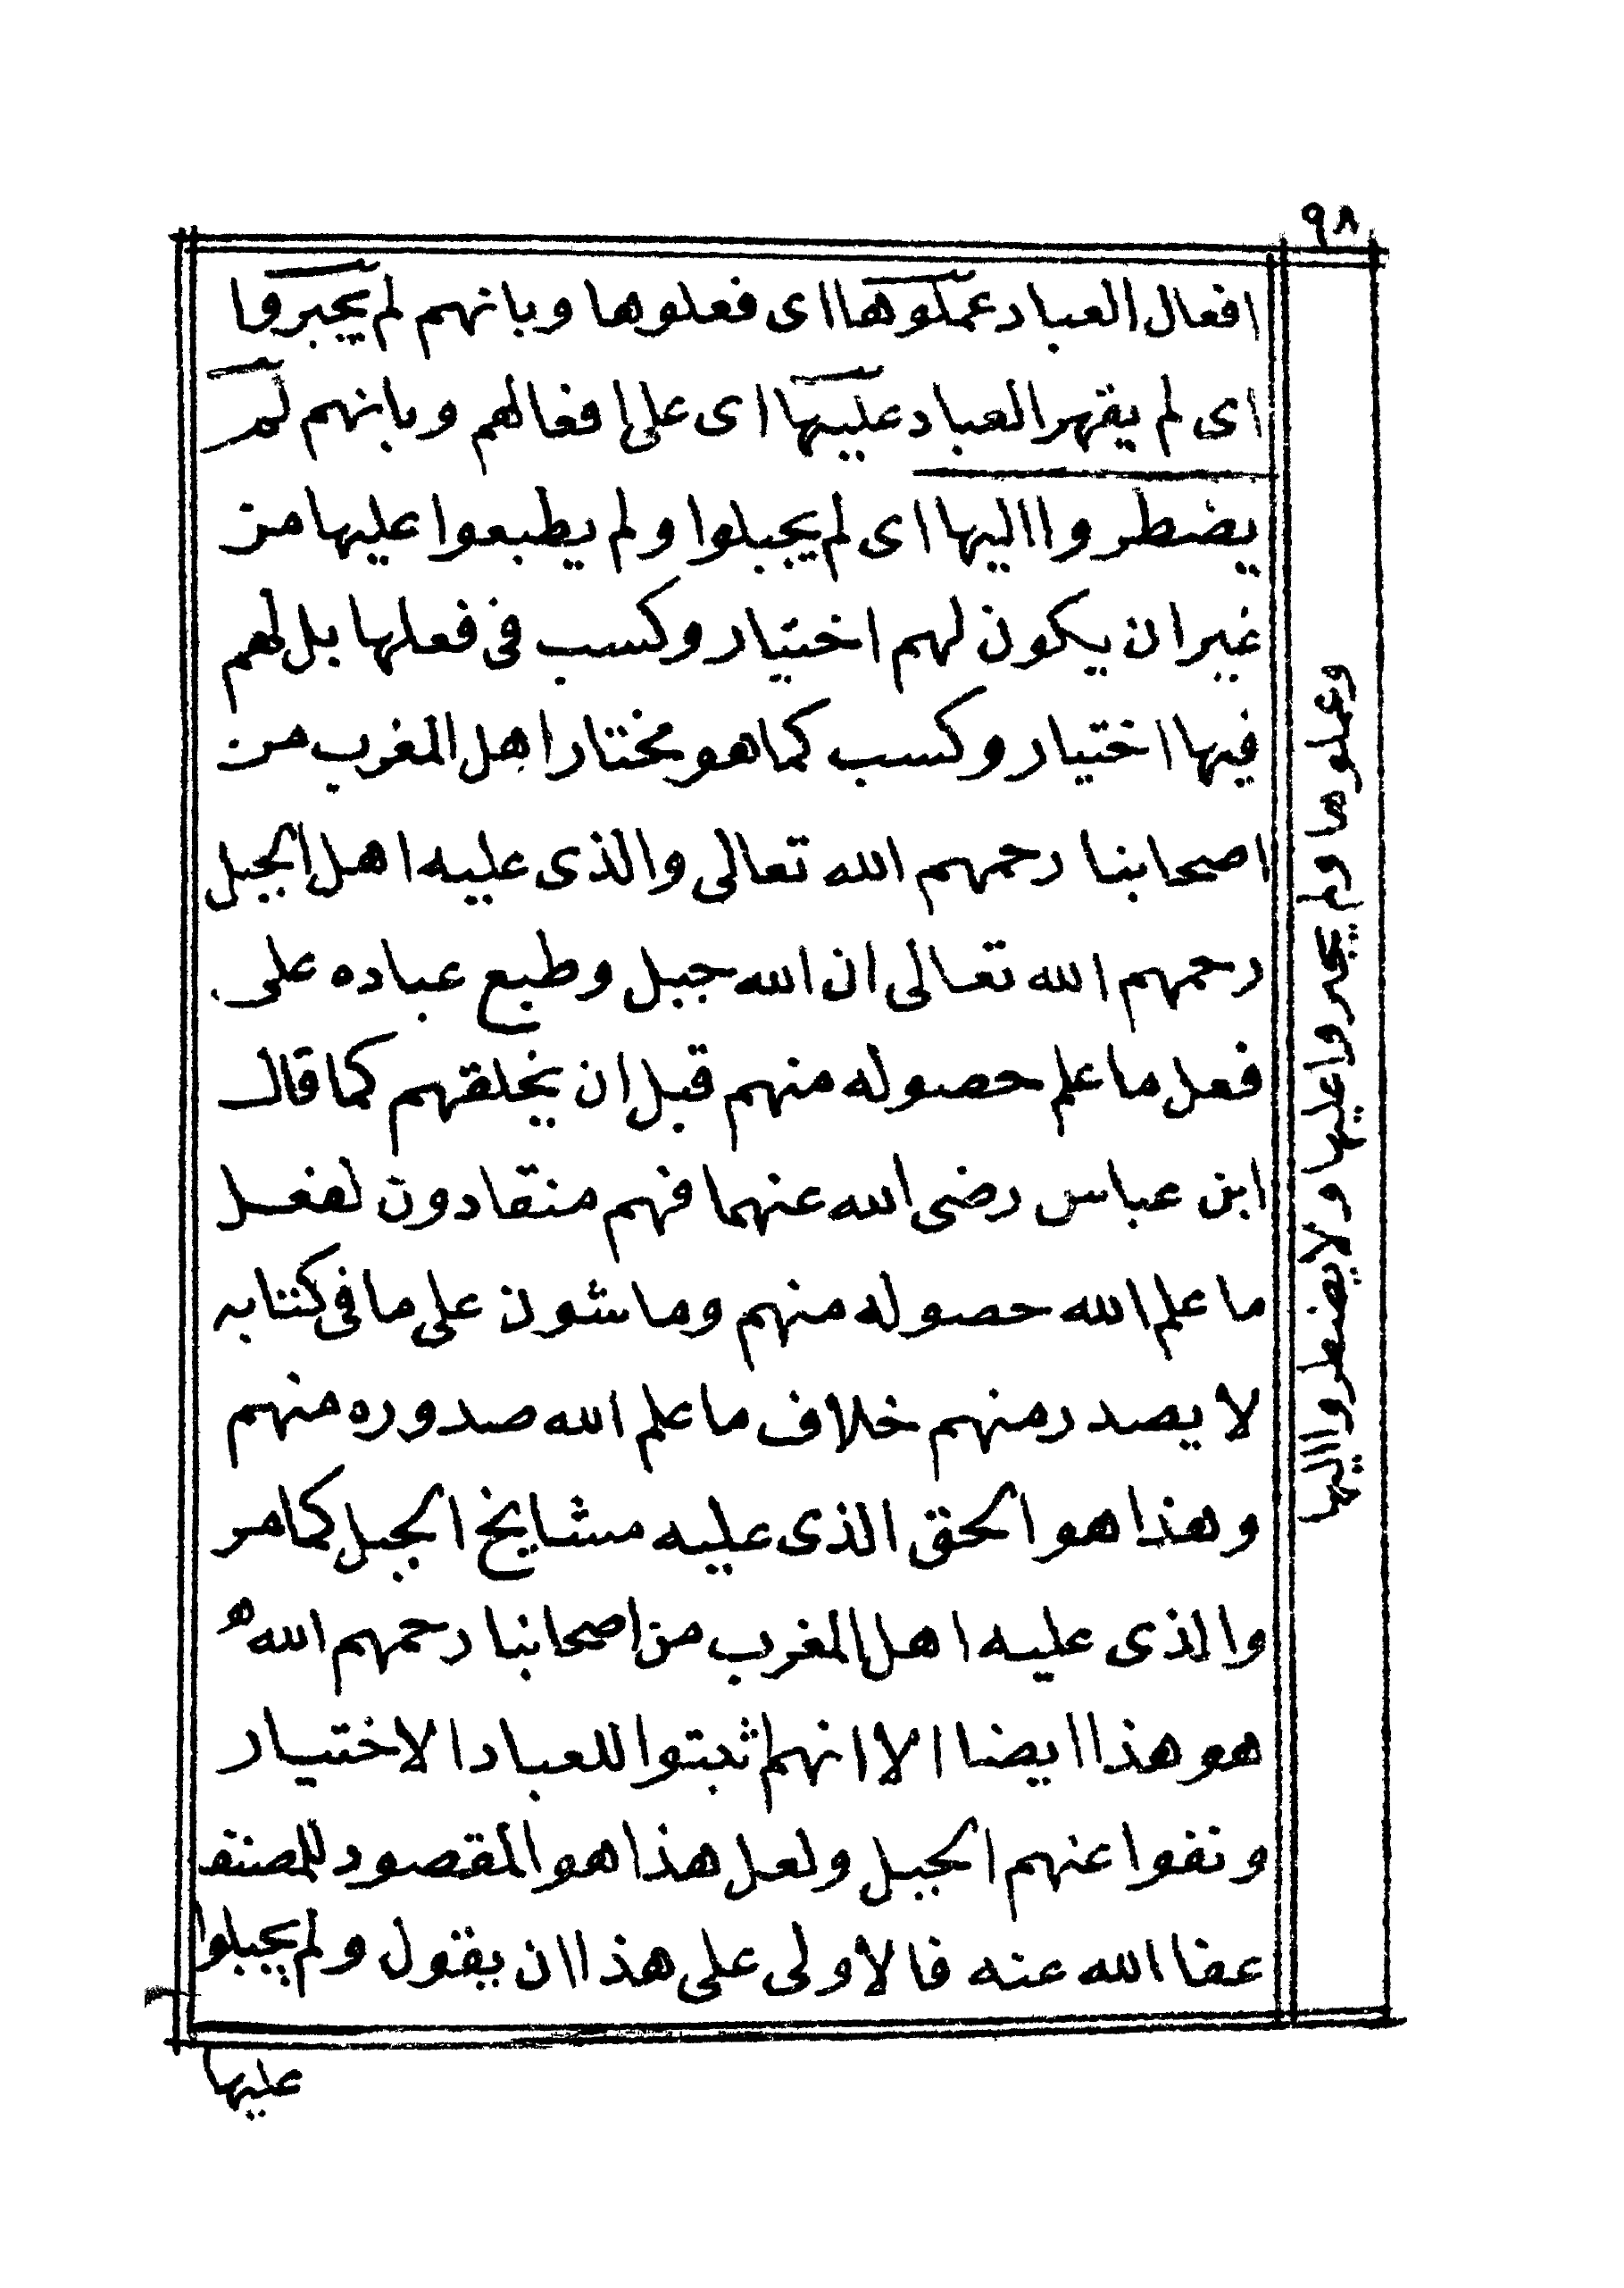 ٩٨
افعال العباد عملوها اى فعلوها وبانهم لم يجبروا
اى لم يقهر العباد عليها اى على افعالهم وبانهم لم
يضطروا اليها اى لم يجبلوا ولم يطبعوا عليها من
غير ان يكون لهم اختيار وكسب فى فعلها بل لهم
فيها اختيار وكسب كما هو مختار اهل المغرب من
اصحابنا رحمهم الله تعالى والذى عليه اهل الجبل
رحمهم الله تعالى ان الله جبل وطبع عباده على
فعل ما علم حصوله منهم قبل ان يخلقهم كما قال
ابن عباس رضى الله عنهما فهم منقادون لفعل
ما علم الله حصوله منهم وماشون على ما فى كتابه
لا يصدر منهم خلاف ما علم الله صدوره منهم
وهذا هو الحق الذى عليه مشايخ الجبل كما مر
والذى عليه اهل المغرب من اصحابنا رحمهم الله هو
هو هذا ايضا الا انهم ثبتوا للعباد الاختيار
ونفوا عنهم الجبل ولعل هذا هو المقصود للمصنف
عفا الله عنه فالاولى على هذا ان يقول ولم يجبلوا
عليها
وعملوها ولم يجبروا عليها ولا يضطروا اليها